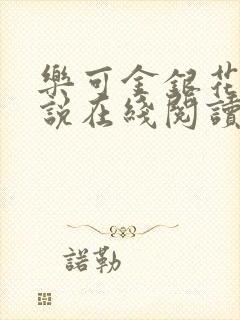 樂可金銀花
說在綫閱讀
諾勒